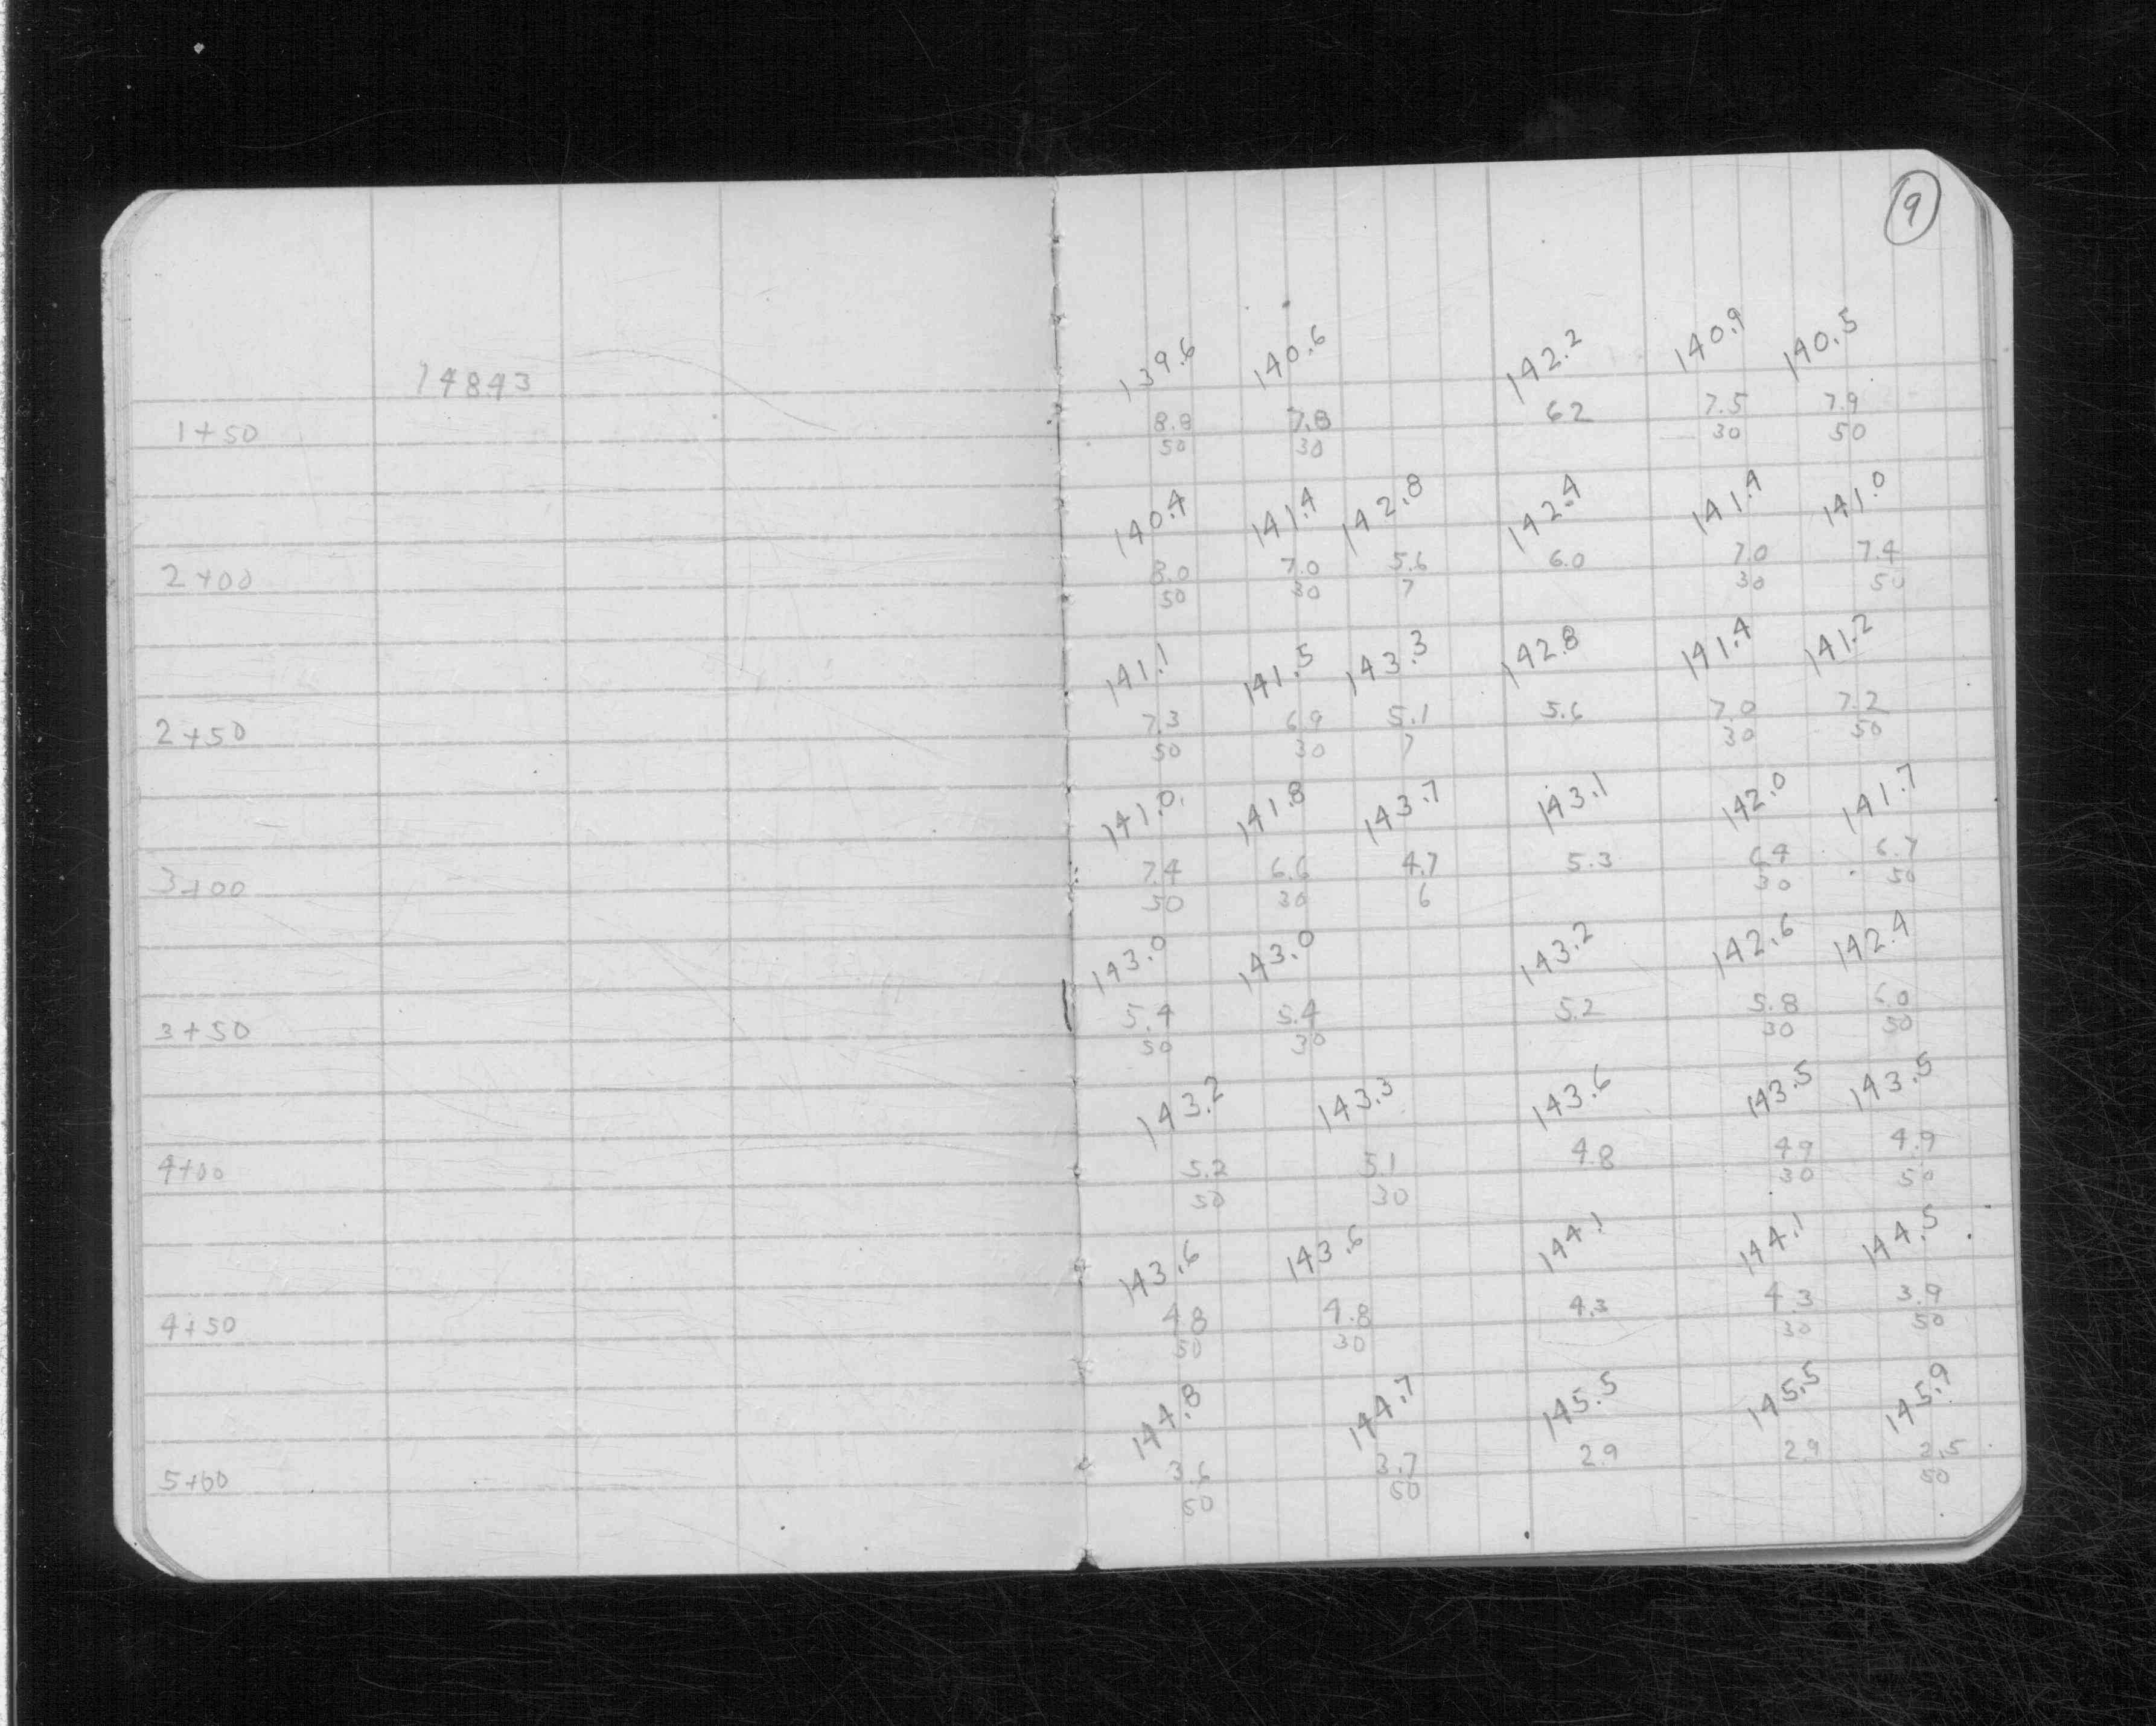 9
14843
139.6 140.6 142.2 140.9 140.5
1+50 8.8 7.8 62 7.5 7.9
50 30 30 50
140.4 141.4 142.8 142.4 141.4 141.0
2+00 8.0 7.0 5.6 6.0 7.0 7.4
50 30 7 30 50
141.1 141.5 143.3 142.8 141.4 141.2
2+50 7.3 6.9 5.1 5.6 7.0 7.2
50 30 7 30 50
141.0 141.8 143.7 143.1 142.0 141.7
3+00 7.4 6.6 4.7 5.3 6.4 6.7
50 30 6 30 50
143.0 143.0 143.2 142.6 142.4
3+50 5.4 5.4 5.2 5.8 6.0
50 30 30 50
143.2 143.3 143.6 143.5 143.5
4+00 5.2 5.1 4.8 4.9 4.9
50 30 30 50
143.6 143.6 144.1 144.1 144.5
4+50 4.8 4.8 4.3 4.3 3.9
50 30 30 50
144.8 144.7 145.5 145.5 145.9
5+00 3.6 3.7 2.9 2.9 2.5
50 50 50